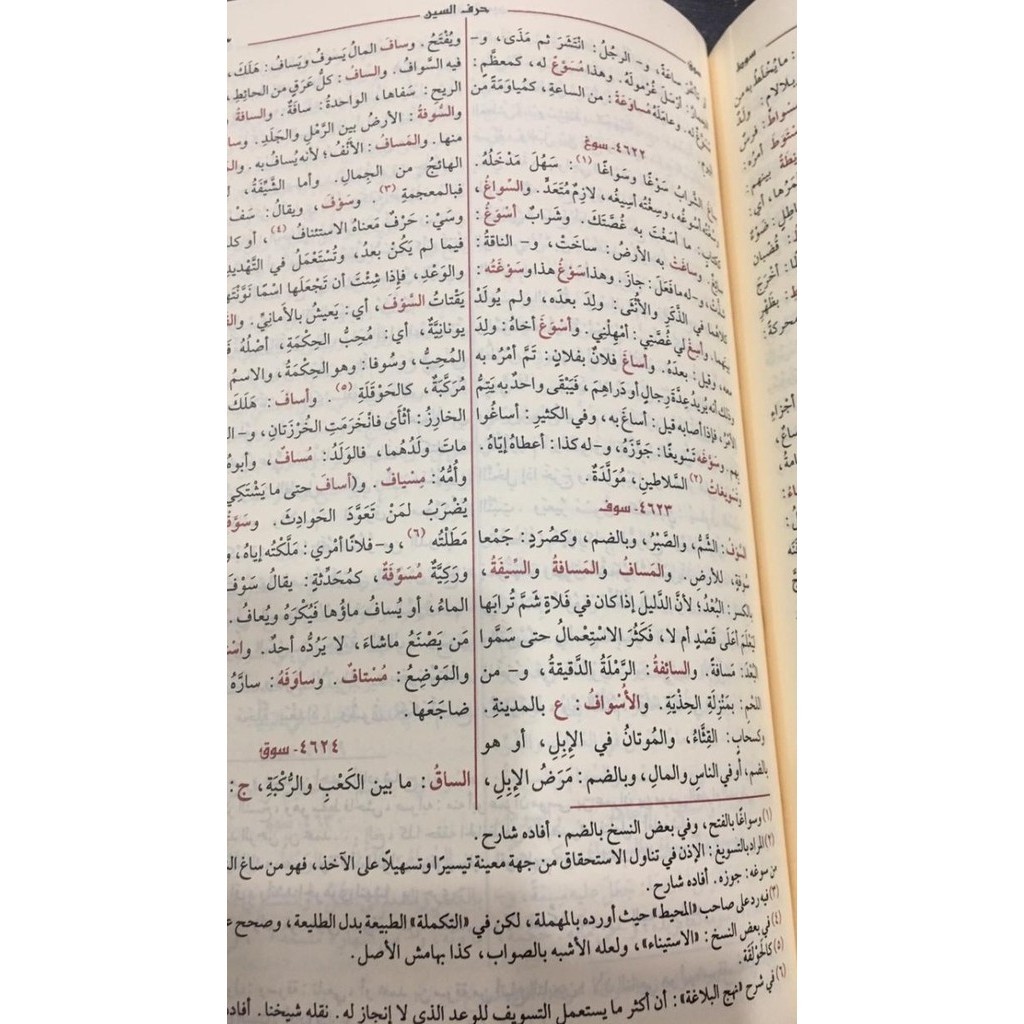 حرف السين
سوط
أو الْبَقَرُ ساعَةً، و- الرجلُ: انْتَشَرَ ثم مَذَى، و-
أرْسَلَ غُرْمولَهُ. وهذا مُسَوَّعٌ له، كمعظَّمٍ:
وعامَلَهُ مُساوَعَةً: من الساعةِ، كمُياوَمَةً من
٤٦٢٢- سوغ
ساغَ الشَّرابُ سَوْغًا وسَواغًا (١): سَهُلَ مَدْخَلُهُ.
وسُغْتُه أسُوغُه، وسِغْتُه أسِيغُه، لازِمٌ مُتَعَدٍّ. والسِّواغُ،
ككتابٍ: ما أسَغْتَ به غُصَّتَكَ. وشَرابٌ أسْوَغُ:
سائِغٌ. وساغَتْ به الأرضُ: ساخَتْ، و- الناقةُ:
شَذَّتْ، و-له ما فَعَلَ: جازَ. وهذا سَوْغُ هذا وسَوْغَتُه:
كلاهُما في الذَّكَرِ والأُنْثَى: وُلِدَ بعدَه، ولم يُولَدْ
بينهما. وأسِغْ لي غُصَّتِي: أمْهِلْنِي. وأسْوَغَ أخاهُ: وُلِدَ
معه، وقيل: بعدَهُ. وأساغَ فلانٌ بفلانٍ: تَمَّ أمْرُه به
وذلك أنه يُريدُ عِدَّةَ رِجالٍ أو دَراهِمَ، فَيَبْقَى واحدٌ به يَتِمُّ
الأمْرُ، فإذا أصابه قيل: أساغَ به، وفي الكثيرِ: أساغُوا
بهم. وسَوَّغَه تَسْوِيغًا: جَوَّزَهُ، و-له كذا: أعطاهُ إيّاهُ.
وتَسْوِيغاتُ (٢) السَّلاطينِ، مُوَلَّدَةٌ.
٤٦٢٣- سوف
السَّوْفُ: الشَّمُّ، والصَّبْرُ، وبالضم، وكصُرَدٍ: جَمْعا
سُوفةٍ، للأرض. والمَسافُ والمَسافةُ والسِّيفَةُ،
بالكسر: البُعْدُ؛ لأنَّ الدَّليلَ إذا كان في فَلاةٍ شَمَّ تُرابَها
لِيَعْلَمَ أعْلَى قَصْدٍ أم لا، فَكَثُرَ الاسْتِعْمالُ حتى سَمَّوا
البُعْدَ: مَسافةً. والسائِفةُ: الرَّمْلَةُ الدَّقيقةُ، و- من
اللحْمِ: بمَنْزِلةِ الحِذْيَةِ. والأَسْوافُ: ع بالمدينةِ.
وكسَحابٍ: القِثَّاءُ، والمُوتانُ في الإِبِلِ، أو هو
بالضم، أو في الناسِ والمالِ، وبالضم: مَرَضُ الإِبِلِ،
ويُفْتَحُ. وسافَ المالُ يَسوفُ ويَسافُ: هَلَكَ،
فيه السَّوافُ. والسافُ: كلُّ عَرَقٍ من الحائِطِ،
الريحِ: سَفاها، الواحدةُ: سافَةٌ. والسافةُ
والسُّوفةُ: الأرضُ بين الرَّمْلِ والجَلَدِ.
منها. والمَسافُ: الأنْفُ؛ لأنه يُسافُ به.
الهائجُ من الجِمالِ. وأما الشَّيِّفَةُ،
فبالمعجمةِ (٣). وسَوْفَ، ويقالُ: سَفْ
وسَيْ: حَرْفٌ مَعناهُ الاستئنافُ (٤)، أو
فيما لم يَكُنْ بعدُ، وتُسْتَعْمَلُ في التَّهْديدِ
والوَعْدِ، فإذا شِئْتَ أن تَجْعَلَها اسْمًا نَوَّنْتَها
يَقْتاتُ السَّوْفَ، أي: يَعيشُ بالأمانِيِّ.
يونانِيَّةٌ، أي: مُحِبُّ الحِكْمَةِ، أصْلُهُ
المُحِبُّ، وسُوفا: وهو الحِكْمَةُ، والاسمُ
مُرَكَّبَةٌ، كالحَوْقَلَةِ (٥). وأسافَ: هَلَكَ
الخارِزُ: أثْأَى فانْخَرَمَتِ الخُرْزَتانِ، و-
ماتَ ولَدُهُما، فالوَلَدُ: مُسافٌ، وأبوهُ
وأُمُّهُ: مِسْيافٌ. و(أسافَ حتى ما يَشْتَكِي
يُضْرَبُ لمَنْ تَعَوَّدَ الحَوادِثَ.
مَطَلْتُه (٦)، و- فلانًا أمْري: مَلَّكْتُه إياه،
ورَكِيَّةٌ مُسَوِّفَةٌ، كمُحَدِّثةٍ: يقالُ سَوْفَ
الماءُ، أو يُسافُ ماؤها فيُكْرَهُ ويُعافُ.
مَن يَصْنَعُ ما شاءَ، لا يَرُدُّه أحدٌ.
والمَوْضِعُ: مُسْتافٌ. وساوَفَهُ: سارَّهُ
ضاجَعَها.
٤٦٢٤- سوق
الساقُ: ما بين الكَعْبِ والرُّكْبَةِ، ج:
(١) وسواغًا بالفتح، وفي بعض النسخ بالضم. أفاده شارح.
(٢) المراد بالتسويغ: الإذن في تناول الاستحقاق من جهة معينة تيسيرًا وتسهيلًا على الآخذ، فهو من ساغ
من سوغه: جوزه. أفاده شارح.
(٣) فيه رد على صاحب «المحيط» حيث أورده بالمهملة، لكن في «التكملة» الطبيعة بدل الطليعة، وصحح
(٤) في بعض النسخ: «الاستيناء»، ولعله الأشبه بالصواب، كذا بهامش الأصل.
(٥) كالحَوْلَقَة.
(٦) في شرح «نهج البلاغة»: أن أكثر ما يستعمل التسويف للوعد الذي لا إنجاز له. نقله شيخنا.